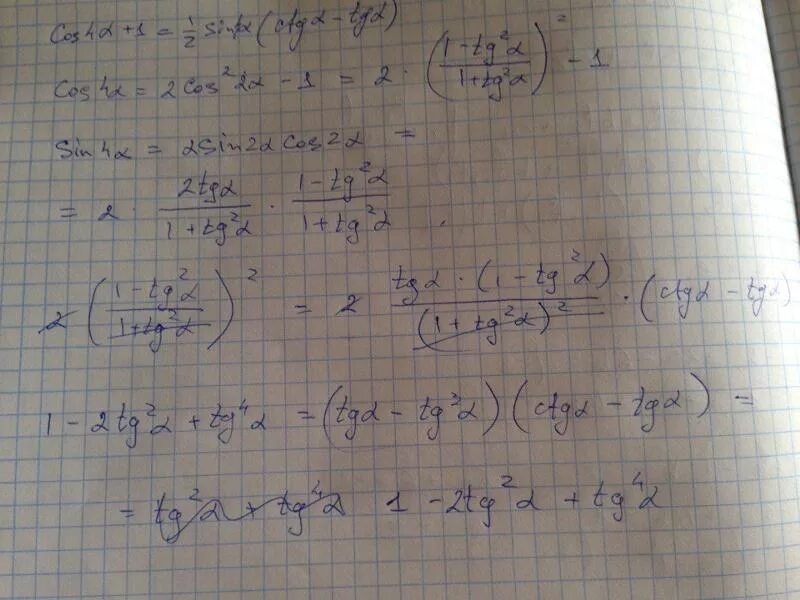 Cos4α + 1 = 1/2 sin4α (ctgα - tgα)
Cos4α = 2cos²2α - 1 = 2 · ((1 - tg²α)/(1 + tg²α))² - 1
Sin4α = 2sin2α cos2α =
= 2 · (2tgα)/(1 + tg²α) · (1 - tg²α)/(1 + tg²α)
2 ((1 - tg²α)/(1 + tg²α))² = 2 (tgα · (1 - tg²α))/((1 + tg²α)²) · (ctgα - tgα)
1 - 2tg²α + tg⁴α = (tgα - tg³α)(ctgα - tgα) =
= tg²α + tg⁴α 1 - 2tg²α + tg⁴α